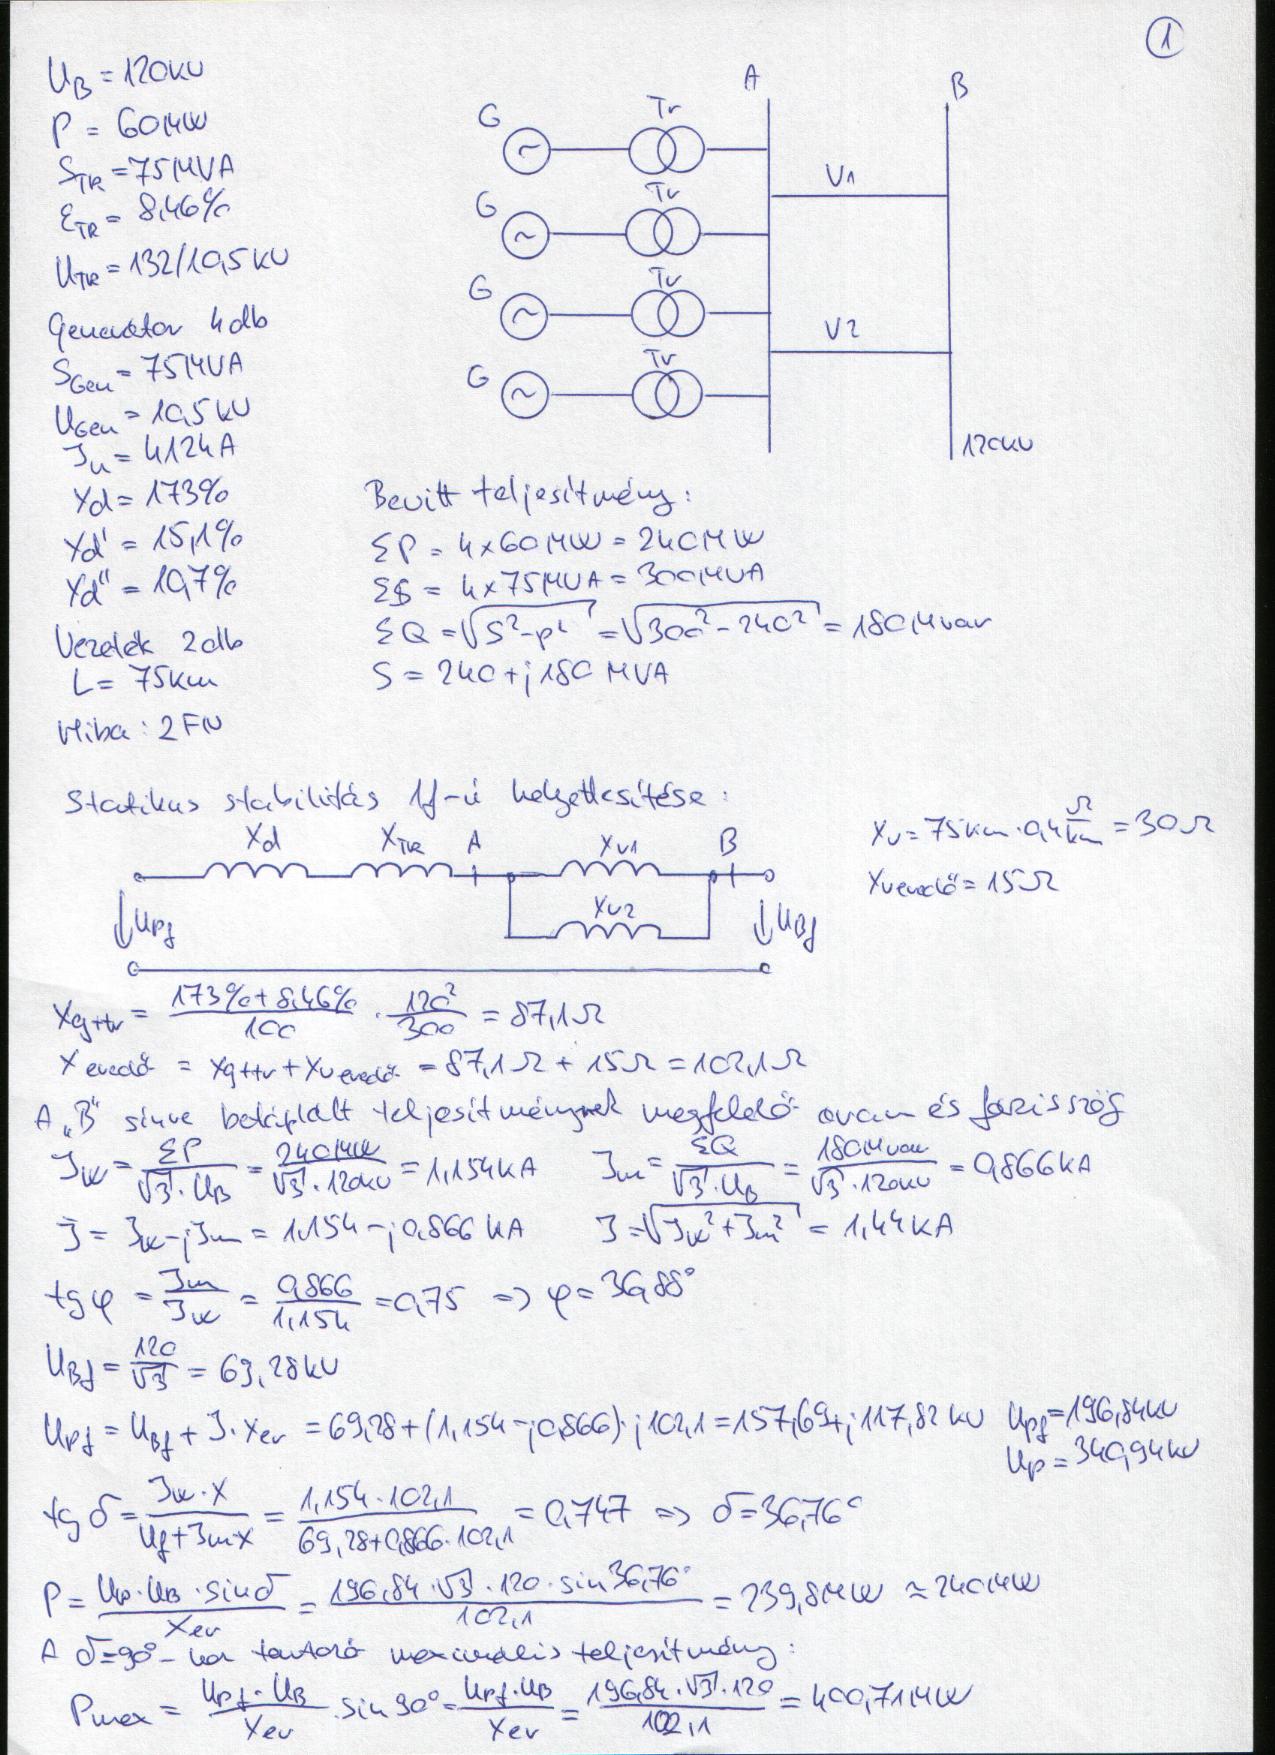 1
U_B = 120kV
P = 60MW
S_TR = 75MVA
ε_TR = 8,46%
U_TR = 132/10,5 kV
Generátor 4db
S_Gen = 75MVA
U_Gen = 10,5 kV
I_n = 4124A
Xd = 173%
Xd' = 15,1%
Xd" = 10,7%
Vezeték 2db
L = 75km
Hiba: 2FN
A B
G Tr
V1
G Tr
G Tr
V2
G Tr
120kV
Bevitt teljesítmény:
ΣP = 4 x 60MW = 240MW
ΣS = 4 x 75MVA = 300MVA
ΣQ = √(S²-P²) = √(300²-240²) = 180Mvar
S = 240 + j180 MVA
Statikus stabilitás 1f-ú helyettesítése:
Xd X_TR A X_V1 B
X_V2
U_Pf U_Bf
X_V = 75km · 0,4 Ω/km = 30Ω
X_Veredő = 15Ω
X_g+tr = (173%+8,46%)/100 · 120²/300 = 87,1Ω
X eredő = X_g+tr + X_Veredő = 87,1Ω + 15Ω = 102,1Ω
A „B" sínre betáplált teljesítménynek megfelelő áram és fázisszög
I_w = ΣP/(√3·U_B) = 240MW/(√3·120kV) = 1,154kA I_m = ΣQ/(√3·U_B) = 180Mvar/(√3·120kV) = 0,866kA
I = I_w - jI_m = 1,154 - j0,866 kA I = √(I_w²+I_m²) = 1,44kA
tg φ = I_m/I_w = 0,866/1,154 = 0,75 => φ = 36,88°
U_Bf = 120/√3 = 69,28kV
U_Pf = U_Bf + I·X_er = 69,28 + (1,154 - j0,866)·j102,1 = 157,69 + j117,82 kV U_Pf = 196,84kV
U_P = 340,94kV
tg δ = (I_w·X)/(U_f+I_mX) = (1,154·102,1)/(69,28+0,866·102,1) = 0,747 => δ = 36,76°
P = (U_P·U_B·sinδ)/X_er = (196,84·√3·120·sin36,76°)/102,1 = 239,8MW ≈ 240MW
A δ=90°-hoz tartozó maximális teljesítmény:
Pmax = (U_Pf·U_B)/X_er · sin90° = (U_Pf·U_B)/X_er = (196,84·√3·120)/102,1 = 400,71MW